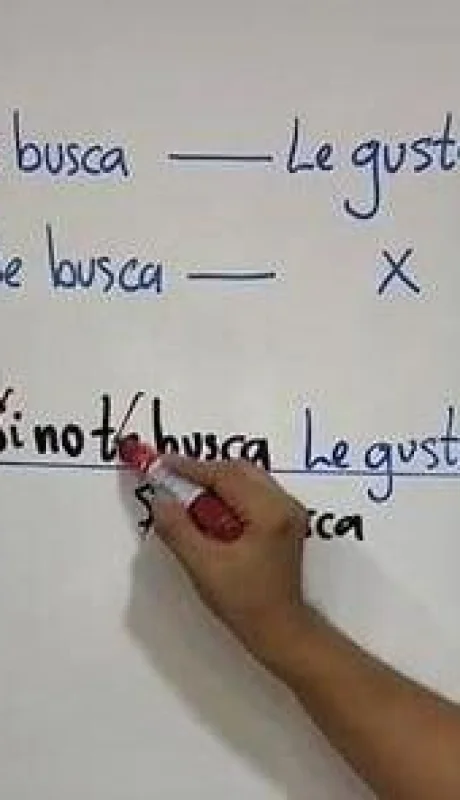 busca — Le gust
e busca — X
Si no te busca Le gust